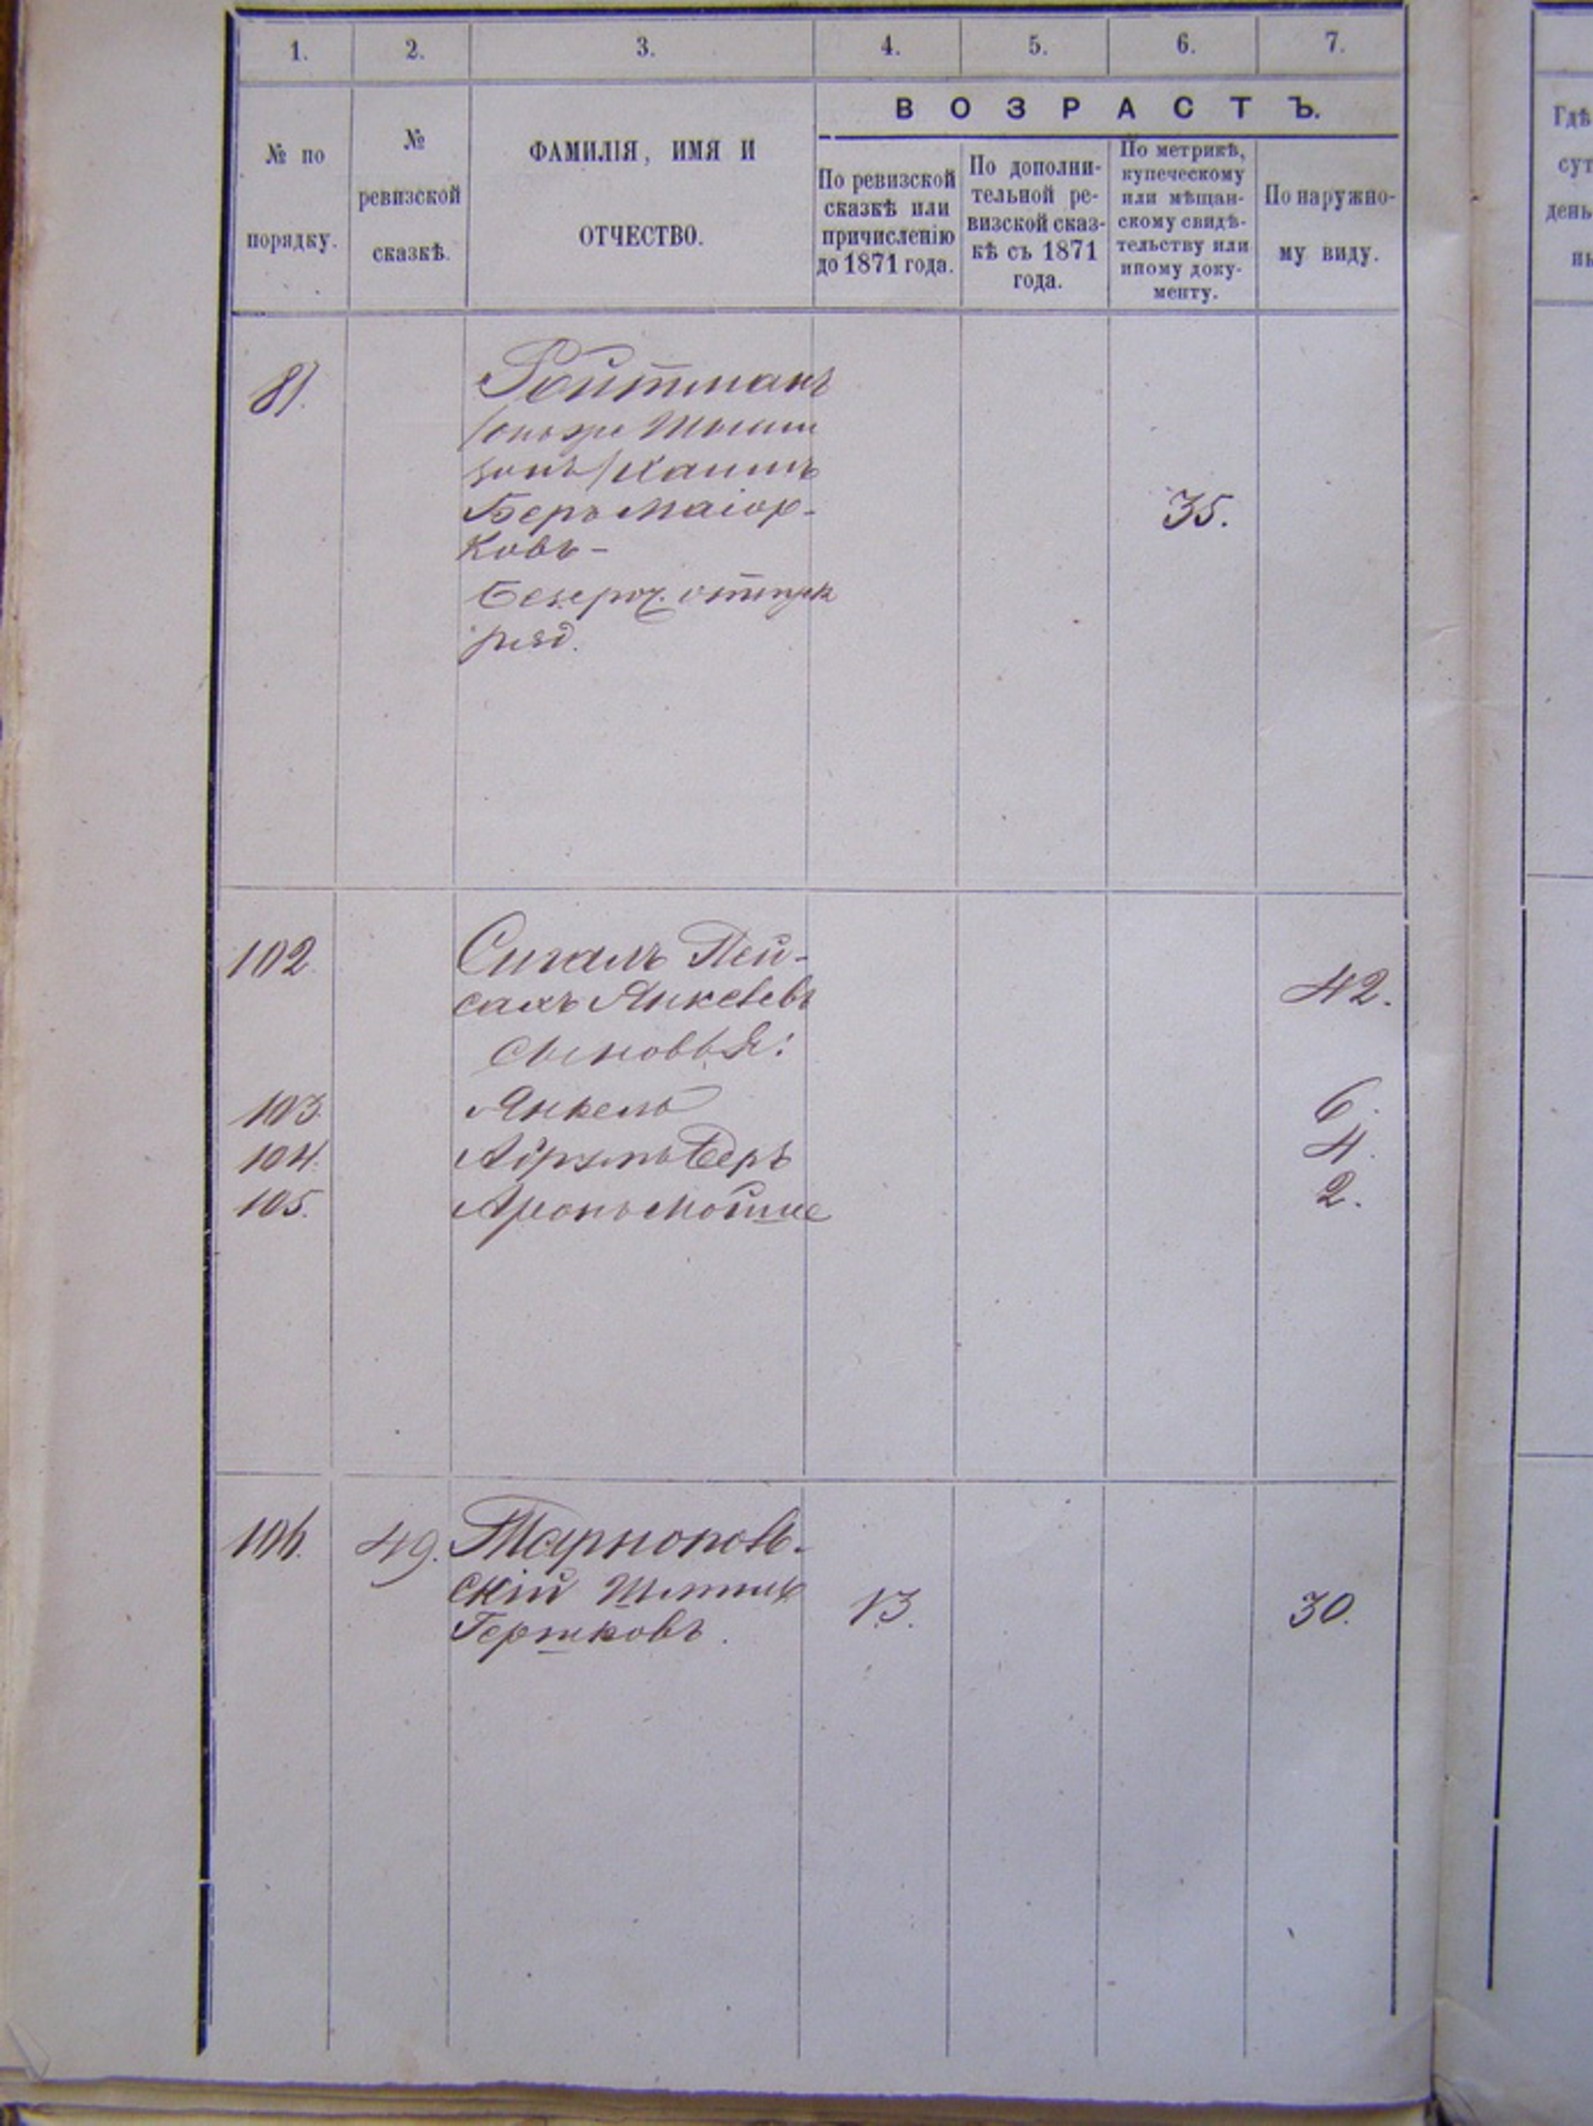 1. 2. 3. 4. 5. 6. 7.
№ по порядку.
№ ревизской сказкѣ.
ФАМИЛІЯ, ИМЯ И
ОТЧЕСТВО.
ВОЗРАСТЪ.
По ревизской
сказкѣ или
причисленію
до 1871 года.
По дополни-
тельной ре-
визской сказ-
кѣ съ 1871
года.
По метрикѣ,
купеческому
или мѣщан-
скому свидѣ-
тельству или
иному доку-
менту.
По наружно-
му виду.
Гдѣ
сут
день
81. Ройтманъ
/онъ же
зонъ/ Хаимъ
Беръ Маіор- 35.
ковъ -
Безсроч. отпуск
ряд.
102. Сигалъ Пей-
сахъ Янкелевъ 42.
сыновья:
103. Янкель 6.
104. Абрумъ Беръ 4.
105. Аронъ Мойше 2.
106. 49. Тарнопов-
скій 13. 30.
Гершковъ.